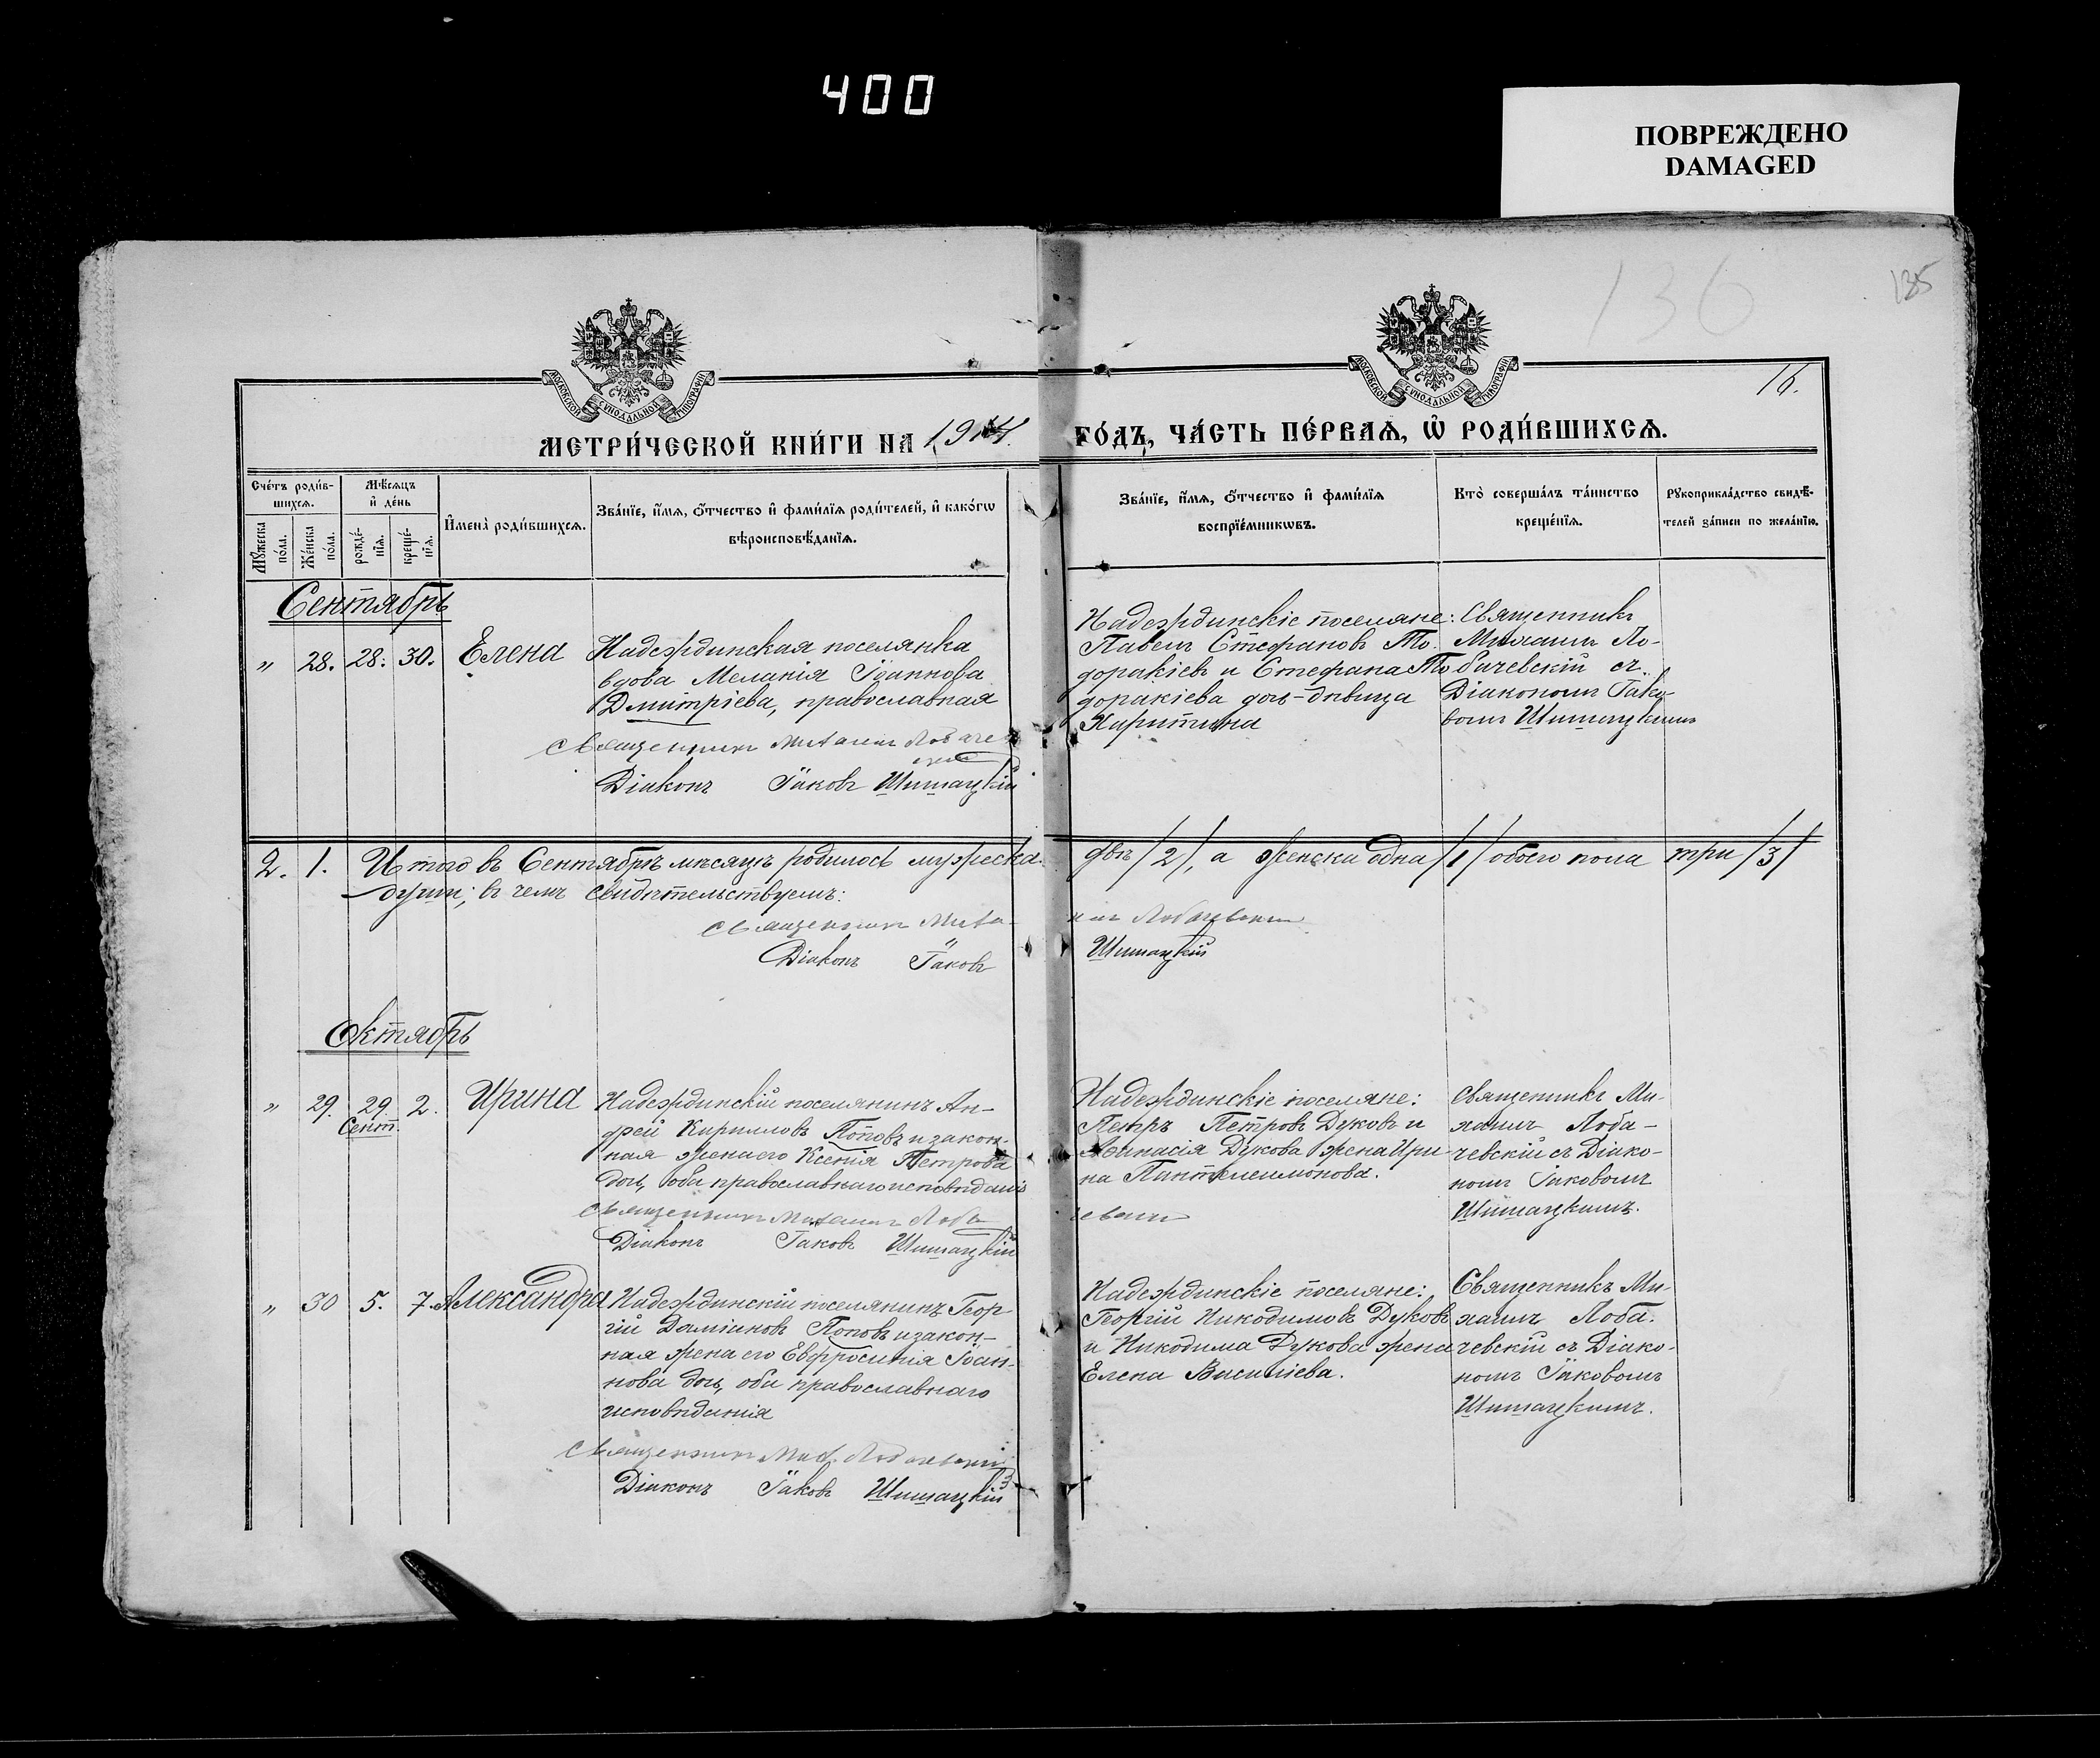 400
ПОВРЕЖДЕНО
DAMAGED
136
135
МОСКОВСКОЙ СѴНОДАЛЬНОЙ ТИПОГРАФІИ
МОСКОВСКОЙ СѴНОДАЛЬНОЙ ТИПОГРАФІИ
16.
МЕТРИ́ЧЕСКОЙ КНИ́ГИ НА 1914. ГО́ДЪ, ЧА́СТЬ ПЕ́РВАѦ, Ѡ҆ РОДИ́ВШИХСѦ.
Сче́тъ роди́в-
шихсѧ.
Мѣ́сѧцъ
и҆ де́нь
Мꙋ́жеска
по́ла.
Же́нска
по́ла.
рожде́-
нїѧ.
креще́-
нїѧ.
И҆мена̀ роди́вшихсѧ.
Зва́нїе, и҆́мѧ, ѻ҆́тчество и҆ фами́лїѧ роди́телей, и҆ како́гѡ
вѣроисповѣ́данїѧ.
Зва́нїе, и҆́мѧ, ѻ҆́тчество и҆ фами́лїѧ
воспрїе́мникѡвъ.
Кто̀ соверша́лъ та́инство
креще́нїѧ.
Рꙋкоприкла́дство свидѣ́-
телей за́писи по жела́нїю.
Сентябрь
" 28. 28. 30. Елена
Надеждинская поселянка
вдова Меланія Іоаннова
Дмитріева, православная
Священник Михаил Лобачев
ский
Діаконъ Іаковъ Шишацкій
Надеждинскіе поселяне:
Павелъ Стефановъ То-
доракіевъ и Стефана То-
доракіева дочь-дѣвица
Харитина
Священникъ
Михаилъ Ло-
бачевскій съ
Діакономъ Іако-
вомъ Шишацкимъ
2. 1. Итого въ Сентябрѣ мѣсяцѣ родилось мужеска двѣ /2/, а женска одна /1/ обоего пола три /3/
души; въ чемъ свидѣтельствуемъ:
Священник Миха- ил Лобачевский
Діаконъ Іаковъ Шишацкій
Октябрь
" 29. 29. 2. Ирина
Сент.
Надеждинскій поселянинъ Ан-
дрей Кирилловъ Поповъ и закон-
ная жена его Ксенія Петрова
дочь, оба православнаго исповѣданія
Священник Михаил Лоба чевский
Діаконъ Іаковъ Шишацкій
Надеждинскіе поселяне:
Петръ Петровъ Дуковъ и
Аѳанасія Дукова жена Ири-
на Пантелеимонова.
Священникъ Ми-
хаилъ Лоба-
чевскій съ Діако-
номъ Іаковомъ
Шишацкимъ.
" 30 5. 7. Александра
Надеждинскій поселянинъ Геор-
гій Даміановъ Поповъ и закон-
ная жена его Евфросинія Іоан-
нова дочь, оба православнаго
исповѣданія
Священник Мих. Лобачевский
Діаконъ Іаковъ Шишацкій
Надеждинскіе поселяне:
Георгій Никодимовъ Дуковъ
и Никодима Дукова жена
Елена Василіева.
Священникъ Ми-
хаилъ Лоба-
чевскій съ Діако-
номъ Іаковомъ
Шишацкимъ.